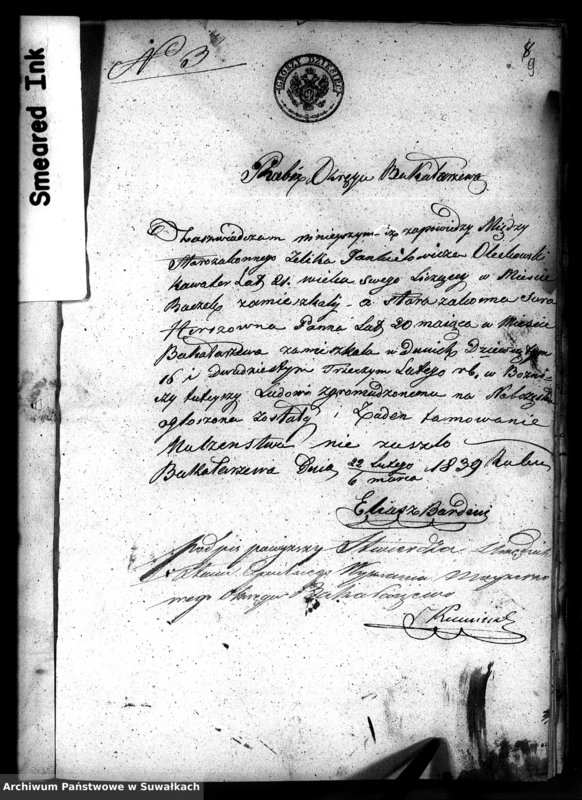 Smeared Ink
No 3
8
9
GROSZY DZIESIĘĆ
Rabin Okręgu Bakałarzewa
Zaświadczam ninieyszym iż zapowiedzy Między
Starozakonnego Zelika Jankielowicza Olechowski
Kawaler Lat 21. wieku Swego Liczący w Mieście
Raczek zamieszkały a Starozakonna Sura
Herszówna Panna Lat 20 maiąca w Mieście
Bakałarzewa zamieszkała w Dniach Dziewiątym
16 i Dwudziestym Trzeczym Lutego rb. w Bożni-
czy tuteyszy Ludowi zgromadzonemu na Nabożeństwo
ogłoszona zostały i Żaden tamowanie
Małżenstwa nie zaszło
Bakałarzewa Dnia 22 Lutego / 6 marca 1839 Roku
Eliasz Bardeni
Podpis powyższy Stwierdza
Stanu Cywilnego Wyznania
nego Okręgu Bakałarzewo
Archiwum Państwowe w Suwałkach